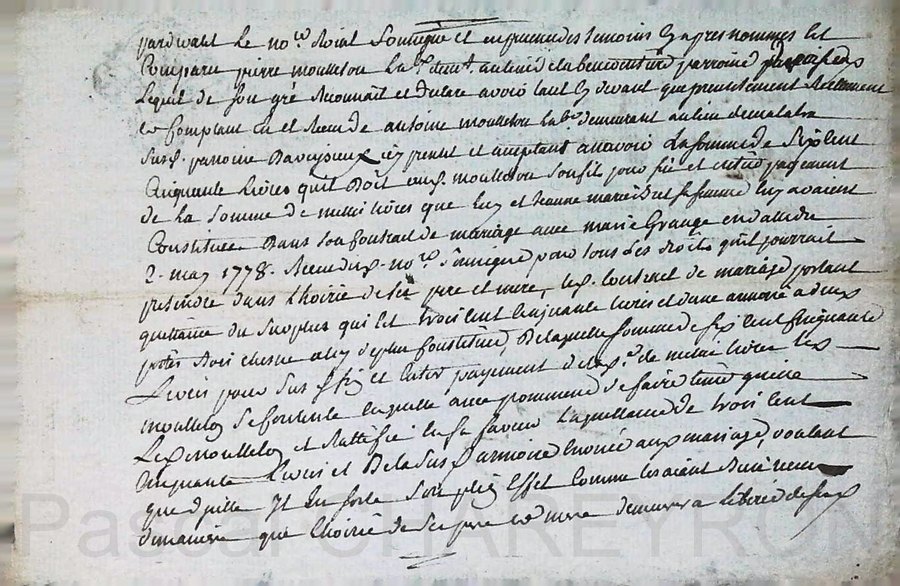 pardevant Le no.re Roial soussigné et en presence des temoins cy apres nommes Est
Comparu pierre moulleton lab.r au lieu de la bonconture parroisse
Lequel de son gré Reconnait et declare avoir tant cy devant que presentement Reellement
et Comptant Eu et Receu de antoine moulleton lab.r demeurant au lieu de malatra
Sus.d parroisse Davejzieux icy present et acceptant a scavoir La somme de Six Cent
Cinquante Livres quil Doit aud. moulleton son fils pour fin et entier payement
de La Somme de mille Livres que luy et Jeanne sa femme luy avaient
Constituée Dans son Contrait de mariage avec marie Grange en datte du
2. may 1778. Receu dud. no.re Soussigné pour tous les droits quil pourrait
pretendre dans Lhoirie de Ses pere et mere, led. Contract de mariage portant
quittance du Surplus qui Est trois Cent Cinquante livres et dune armoire a deux
portes bois chesne a luy Constituée, De laquelle Somme de Six Cent Cinquante
Livres pour Sus.d fin et Entier payement desd. de mille livres Led.
moulleton Se Contente Len quitte avec promesse de Len faire tenir quitte
Led. moulleton et Rattiffie En Sa faveur La quittance de trois Cent
Cinquante Livres et De la Sus.d armoire Enoncée aud. mariage, voulant
que Dje Et En Sorte Son plein Effet Comme les aiant Receu
de maniere que Lhoirie de Ses pere et mere demeurera Liberée de
Pascal CHAREYRON